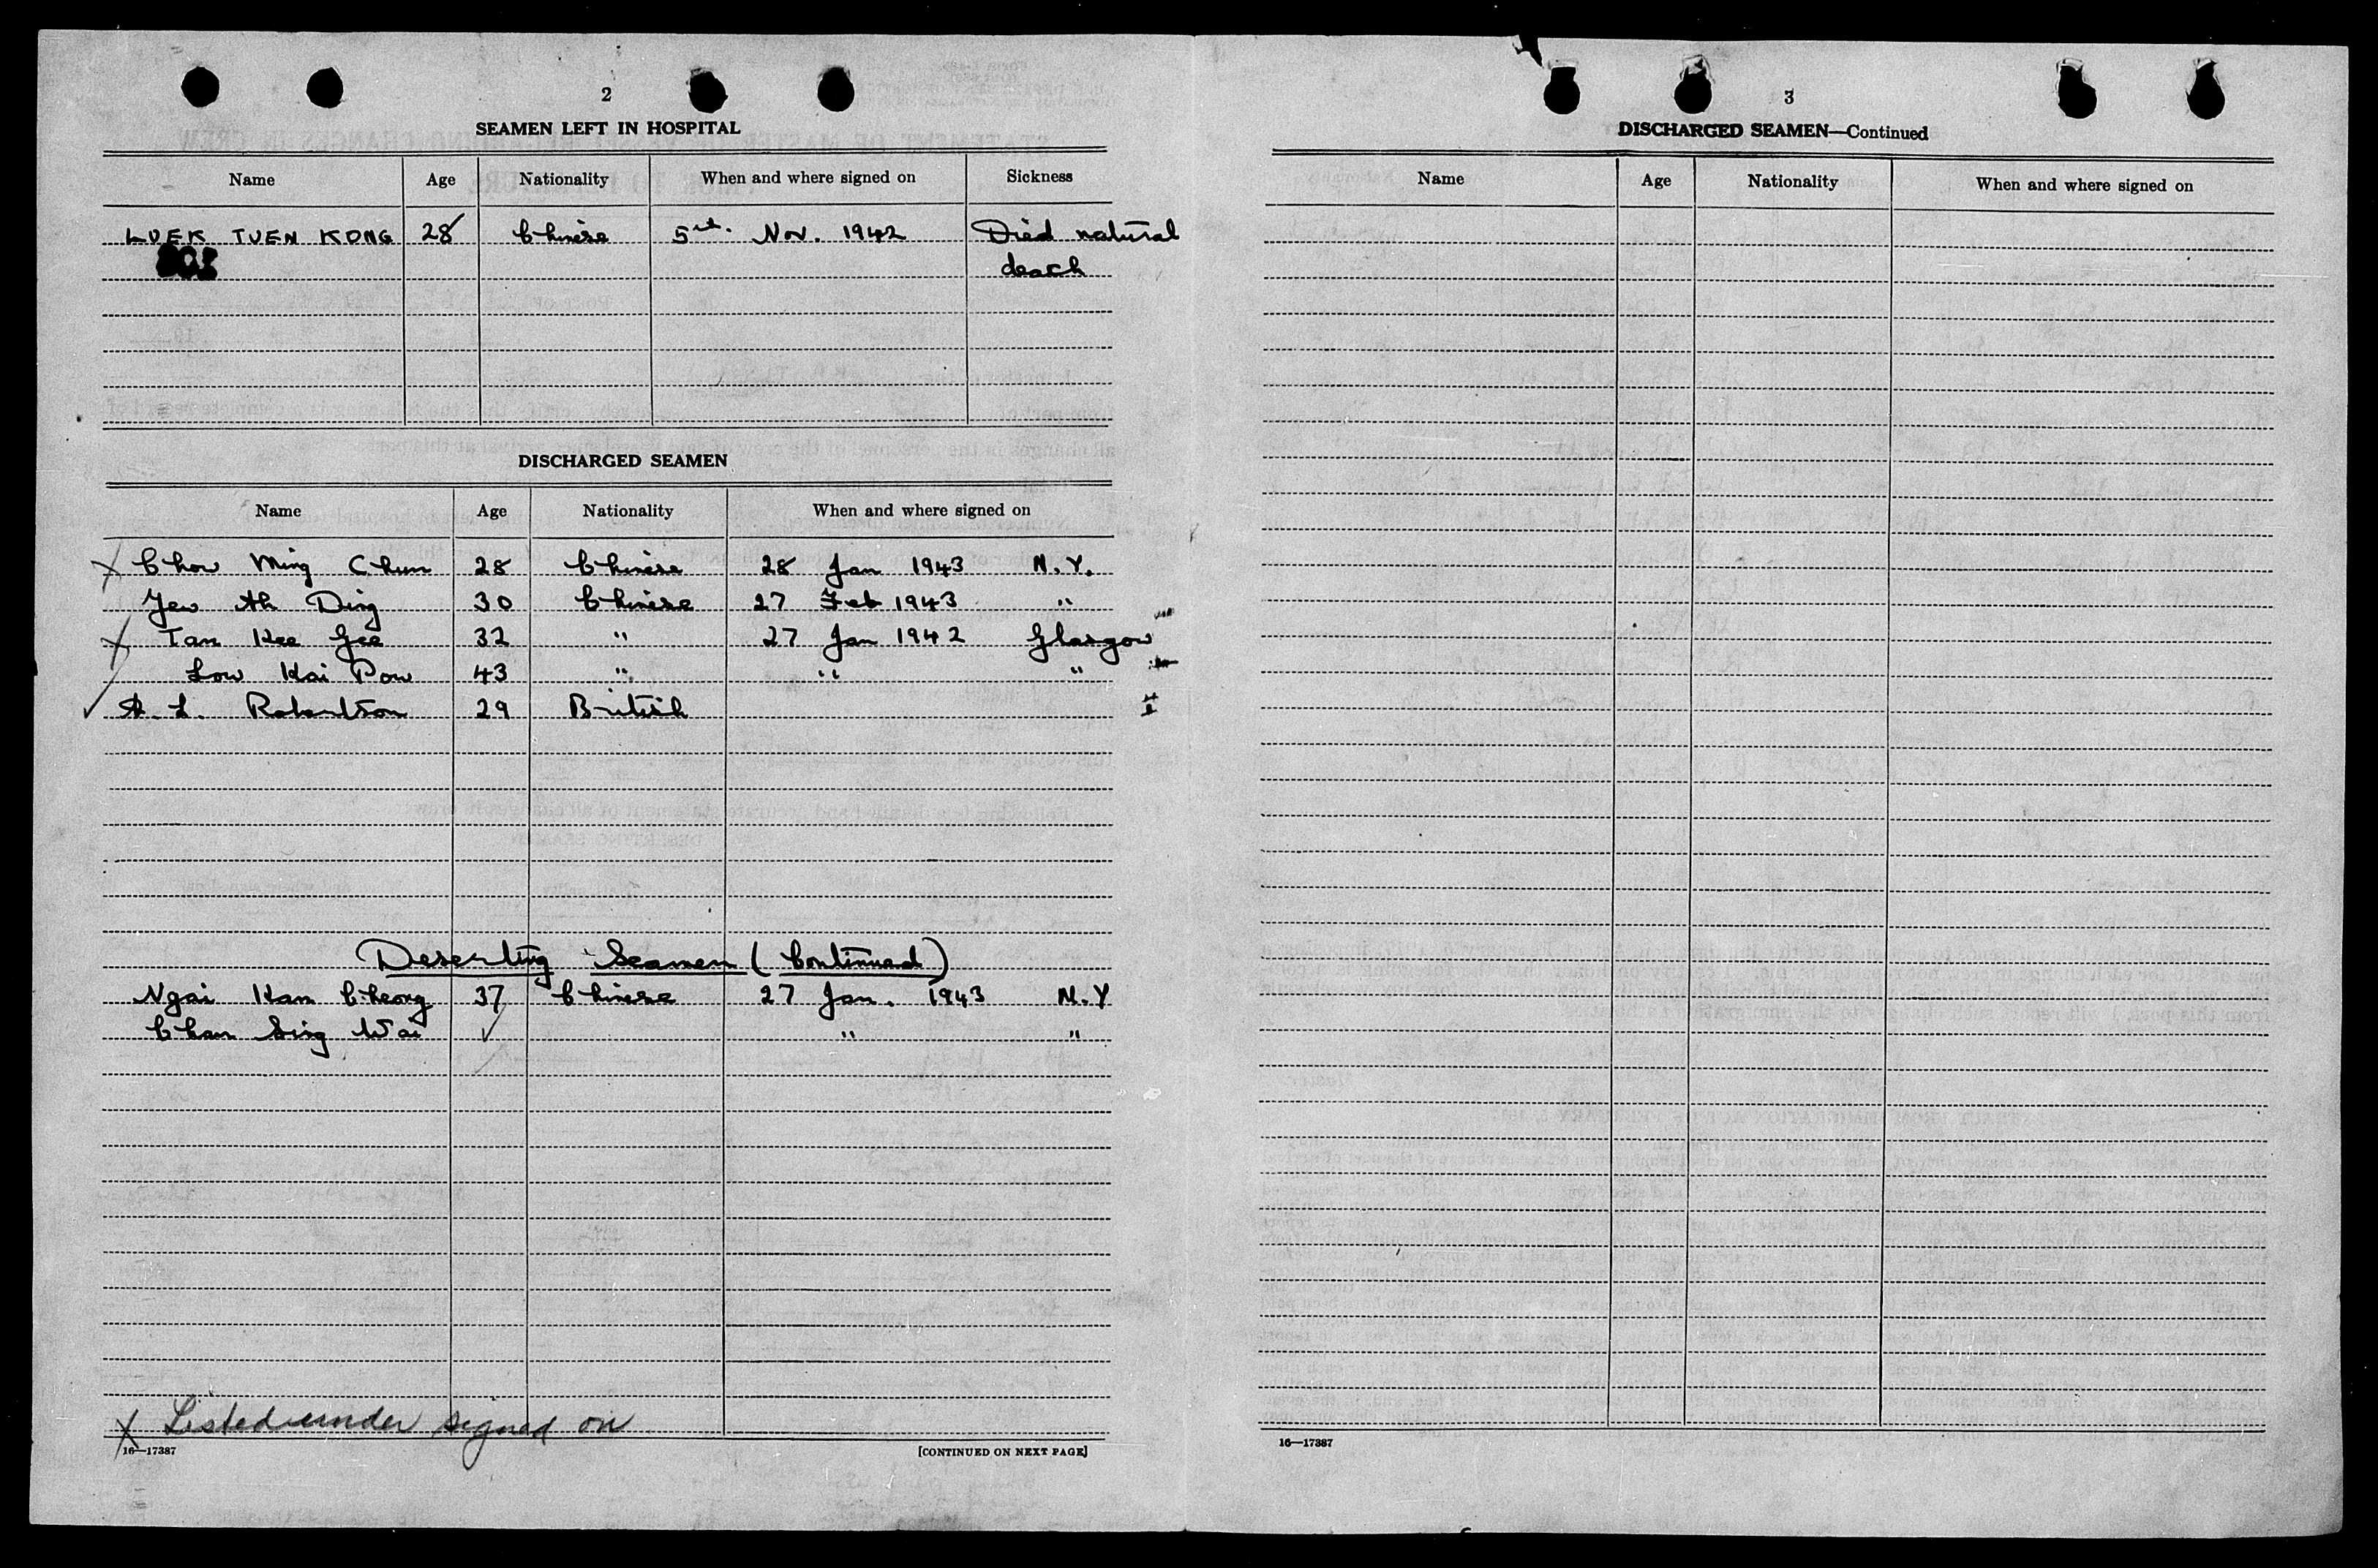 2
SEAMEN LEFT IN HOSPITAL
Name Age Nationality When and where signed on Sickness
LUEK TUEN KONG 28 Chinese 5th. Nov. 1942 Died natural
death
DISCHARGED SEAMEN
Name Age Nationality When and where signed on
X Chow Ming Chun 28 Chinese 28 Jan 1943 N.Y.
Yew Ah Ding 30 Chinese 27 Feb 1943 "
X Tan Kee Gee 32 " 27 Jan 1942 Glasgow
Low Kai Pow 43 " " "
✓ A. L. Robertson 29 British
Deserting Seamen (Continued)
Ngai Kam Cheong 37 Chinese 27 Jan. 1943 N.Y
Chan Sing Wai ✓ " "
X Listed under signed on
16—17387 [CONTINUED ON NEXT PAGE]
3
DISCHARGED SEAMEN—Continued
Name Age Nationality When and where signed on
16—17387